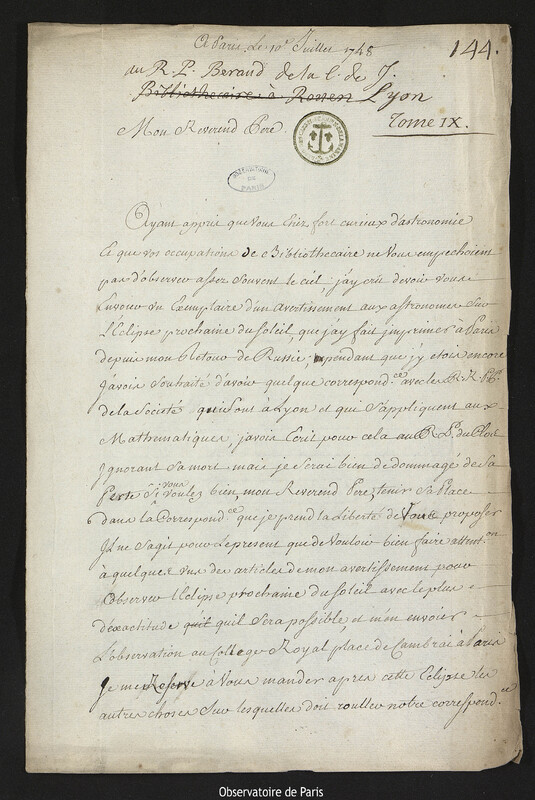 A Paris, Le 10e Juillet 1748
144.
au R. P. Beraud de la C. de J.
Bibliothecaire à Rouen Lyon
Tome IX.
Mon Reverend Pere.
OBSERVATOIRE DE PARIS
Ayant appris que vous etiez fort curieux d'astronomie
et que vos occupations de Bibliothecaire ne vous empechoient
pas d'observer assez souvent le ciel, j'ay crû devoir vous
envoyer un Exemplaire d'un avertissement aux astronomes sur
l'Eclipse prochaine du soleil, que j'ay fait imprimer à Paris
depuis mon Retour de Russie; cependant que j'y etois encore
j'avois souhaité d'avoir quelque correspond.ce avec les R. R. P.P.
de la Societé qui sont à Lyon et qui s'appliquent aux
Mathematiques, j'avois Ecrit pour cela au R. P. du Clos
ignorant sa mort mais je serai bien dedommagé de sa
Perte si vous voulez bien, mon Reverend Pere, tenir sa Place
dans la Correspond.ce que je prend la Liberté de vous proposer
Il ne s'agit pour le present que de vouloir bien faire attent.on
à quelques uns des articles de mon avertissement pour
observer l'Eclipse prochaine du soleil avec le plus
d'exactitude quit quil sera possible, et m'en envoier
L'observation au College Royal place de Cambrai à Paris
Je me Reserve à vous mander apres cette Eclipse les
autres choses sur lesquelles doit rouller notre correspond.ce
Observatoire de Paris